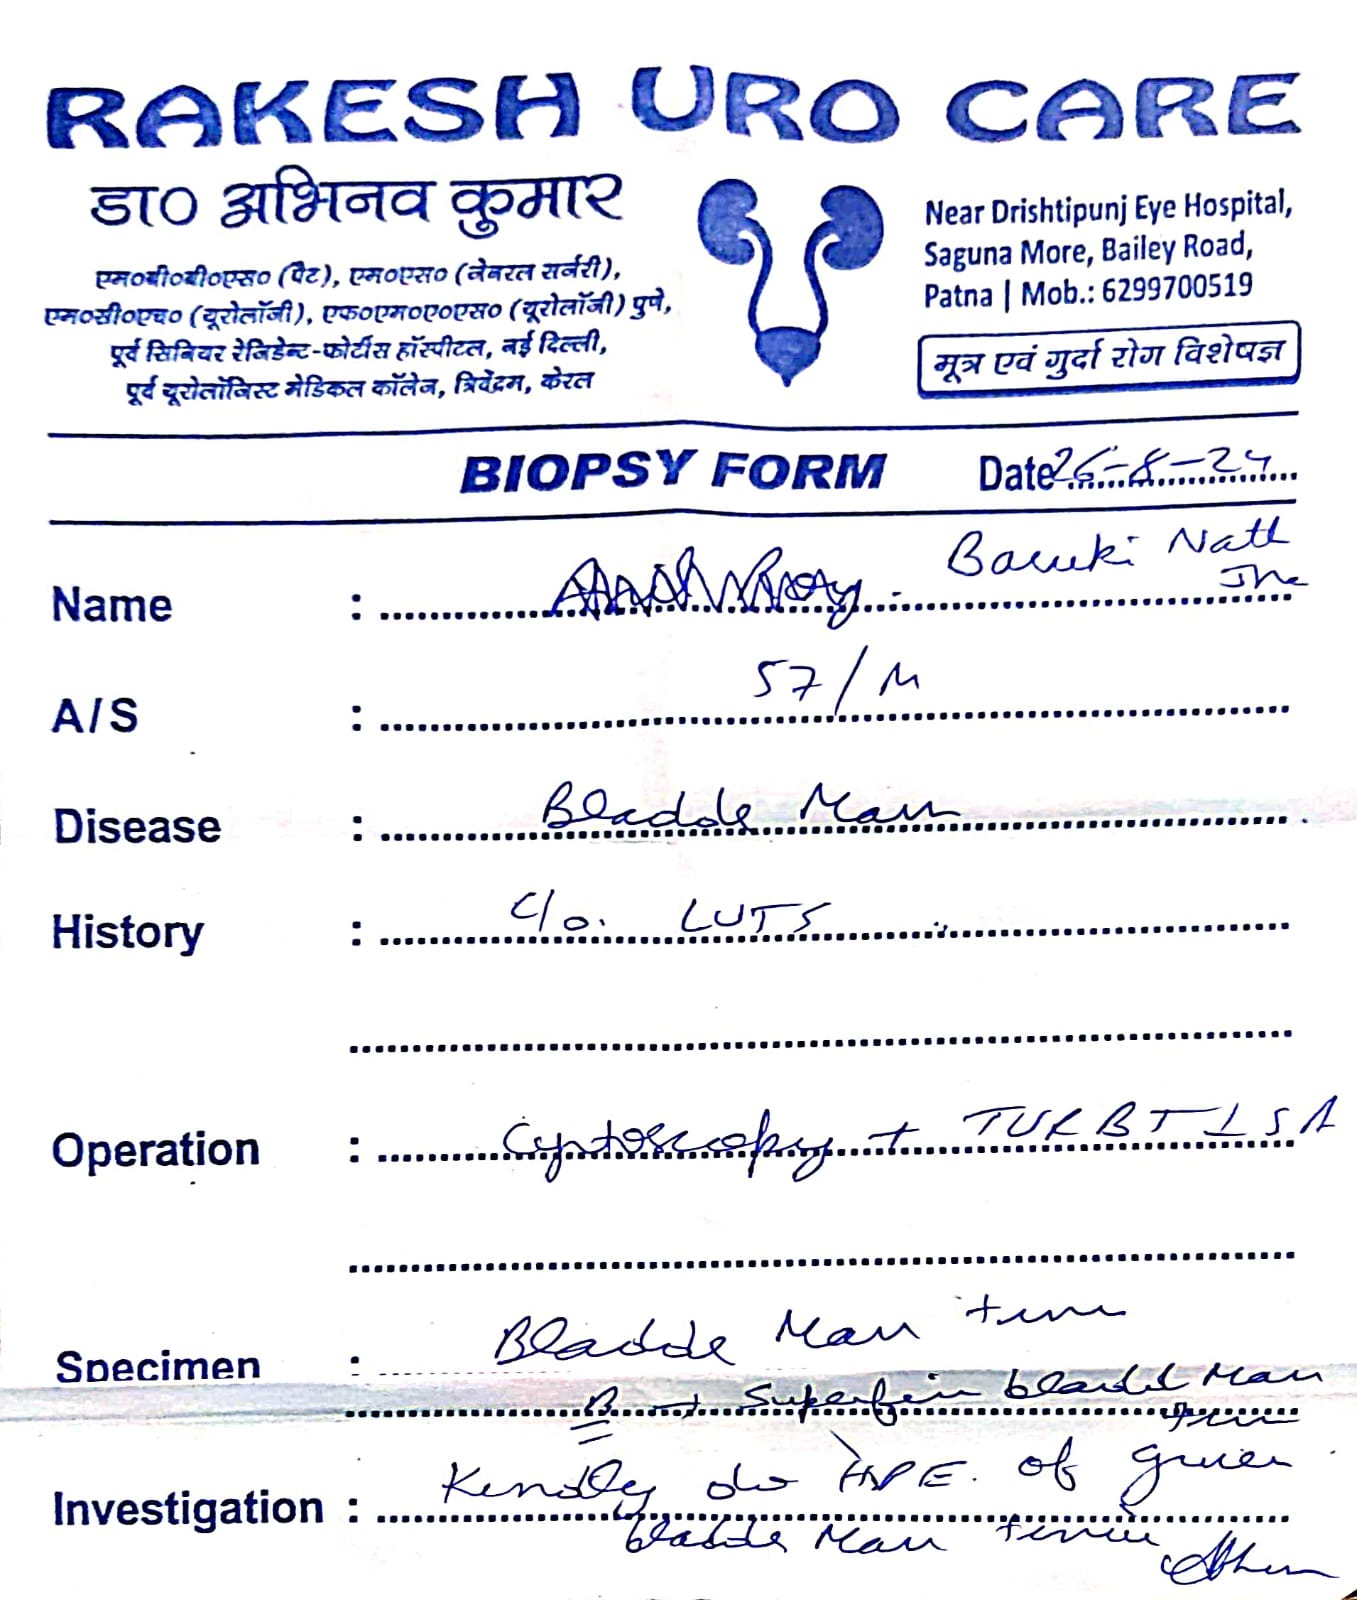 RAKESH URO CARE
डा० अभिनव कुमार
एम०बी०बी०एस० (पैट), एम०एस० (जेनरल सर्जरी),
एम०सी०एच० (यूरोलॉजी), एफ०एम०ए०एस० (यूरोलॉजी) पुणे,
पूर्व सिनियर रेजिडेन्ट-फोर्टीस हॉस्पीटल, नई दिल्ली,
पूर्व यूरोलॉजिस्ट मेडिकल कॉलेज, त्रिवेंद्रम, केरल
Near Drishtipunj Eye Hospital,
Saguna More, Bailey Road,
Patna | Mob.: 6299700519
मूत्र एवं गुर्दा रोग विशेषज्ञ
BIOPSY FORM Date 26-8-24
Name : Nath
A/S : 57/M
Disease : Bladde Mass
History : C/o. LUTS
Operation : Cystoscopy + TURBT ⊥ SA
Specimen : Bladde Mass
bladde Mass
Investigation : Kindly do HPE. of given
bladde Mass